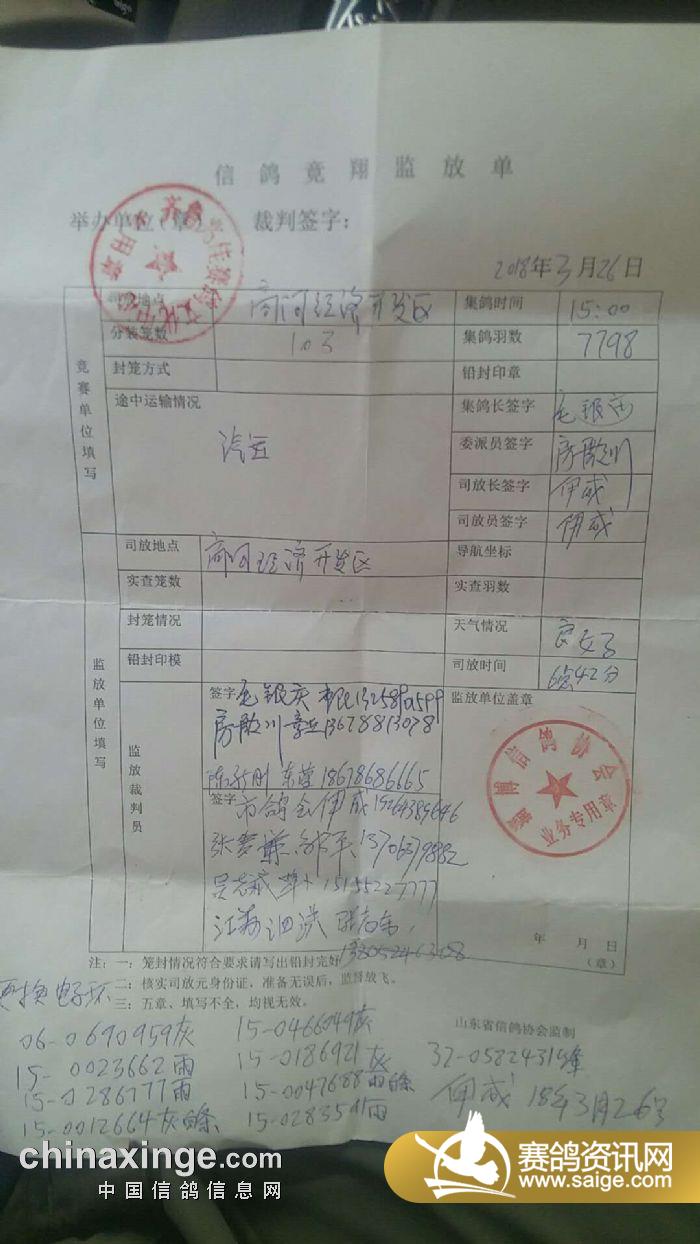 信鸽竞翔监放单
举办单位（章） 裁判签字：
2018年3月26日
竞赛单位填写
司放地点 商河经济开发区 集鸽时间 15:00
分装笼数 103 集鸽羽数 7798
封笼方式 铅封印章
途中运输情况 汽运 集鸽长签字
委派员签字
司放长签字 伊威
司放员签字 伊威
监放单位填写
司放地点 商河经济开发区 导航坐标
实查笼数 实查羽数
封笼情况 天气情况 良好
铅封印模 司放时间 6点42分
监放裁判员
签字 毛银庆
13678813078
东营 18678686665
监放单位盖章
淄博信鸽协会
业务专用章
签字 市鸽会伊威
15155227777
江苏泗洪
年 月 日
（章）
注：一：笼封情况符合要求请写出铅封完好
二：核实司放元身份证，准备无误后，监督放飞。
三：五章、填写不全，均视无效。
更换电子环
06-0690959灰 15-0466049灰
山东省信鸽协会监制
15-0023662雨 15-0186921灰
15-0286777雨 15-0047688雨白条
15-0012664灰白条 15-0283541雨
伊威 18年3月26号
chinaxinge.com
中国信鸽信息网
赛鸽资讯网
www.saige.com